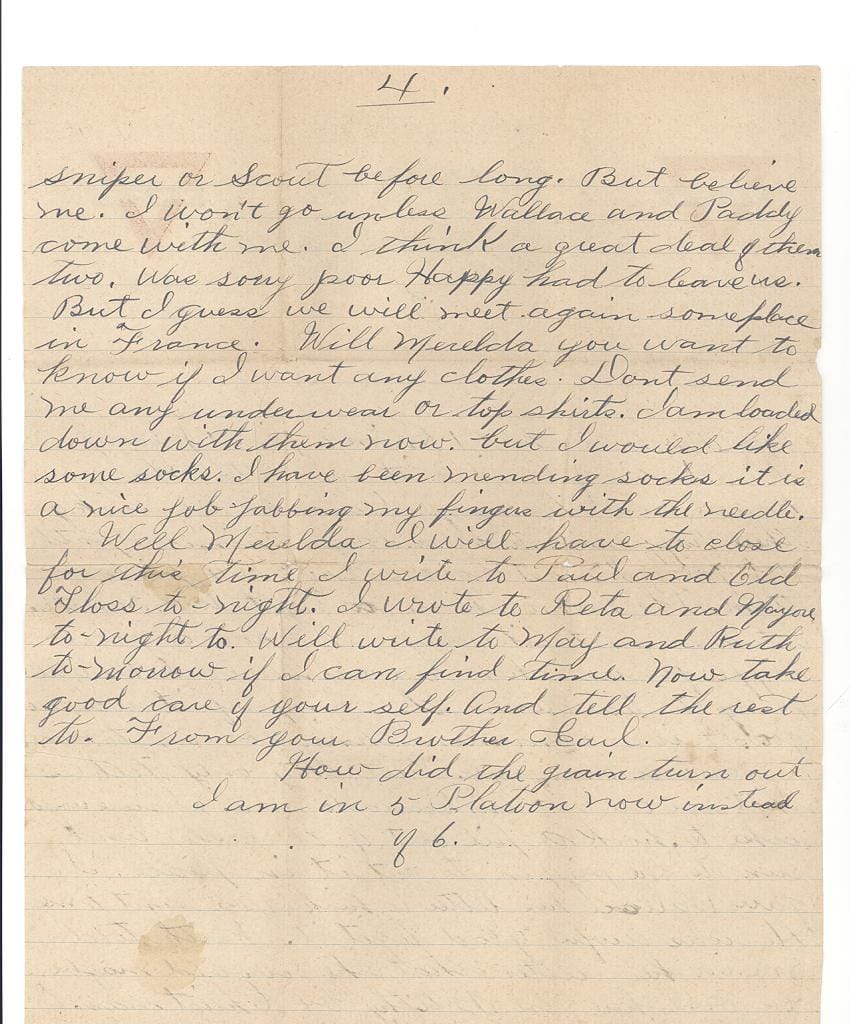 4.
sniper or Scout before long. But believe
me. I won't go unless Wallace and Paddy
come with me. I think a great deal of them
two. Was sorry poor Happy had to leave us.
But I guess we will meet again someplace
in France. Will Merelda you want to
know if I want any clothes. Dont send
me any underwear or top shirts. I am loaded
down with them now. but I would like
some socks. I have been mending socks it is
a nice job jabbing my fingers with the needle.
Well Merelda I will have to close
for this time I write to Paul and Old
Floss to-night. I wrote to Reta and
to-night to. Will write to May and Ruth
to-morrow if I can find time. Now take
good care of your self. And tell the rest
to. From your Brother Earl.
How did the grain turn out
I am in 5 Platoon now instead
of 6.